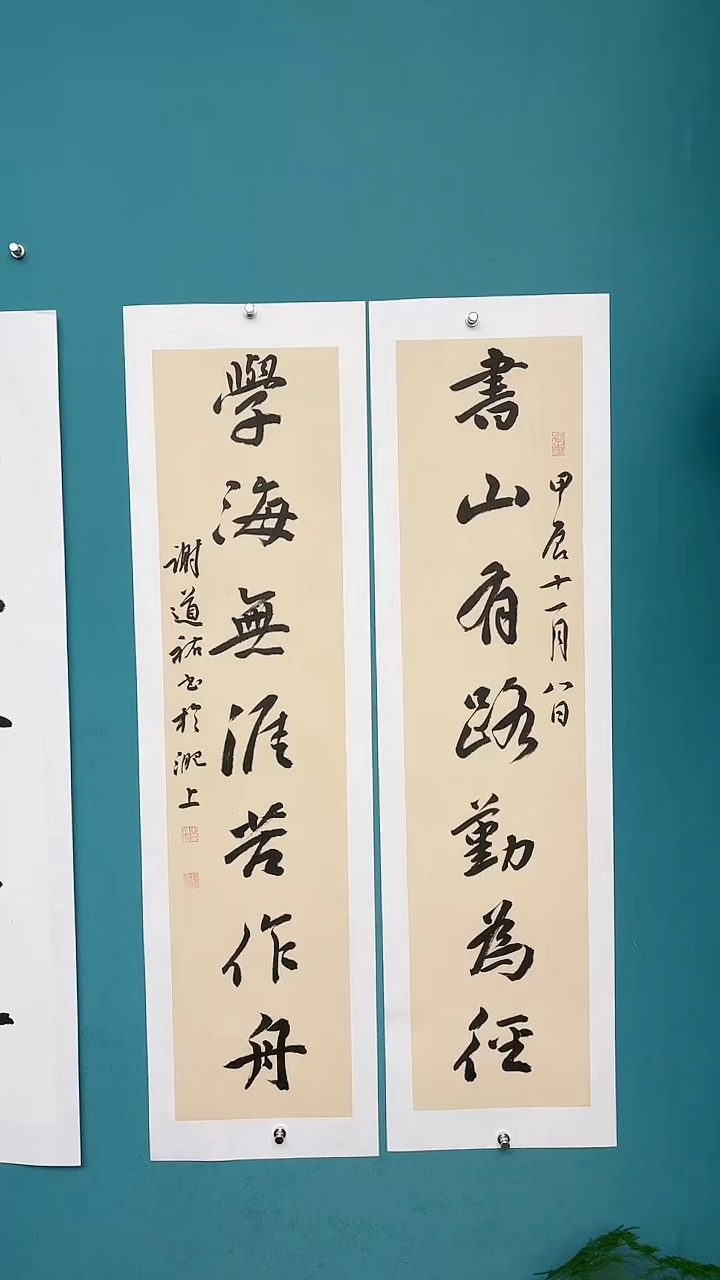 書山有路勤為徑
甲辰十一月八日
學海無涯苦作舟
謝道祜書於淝上